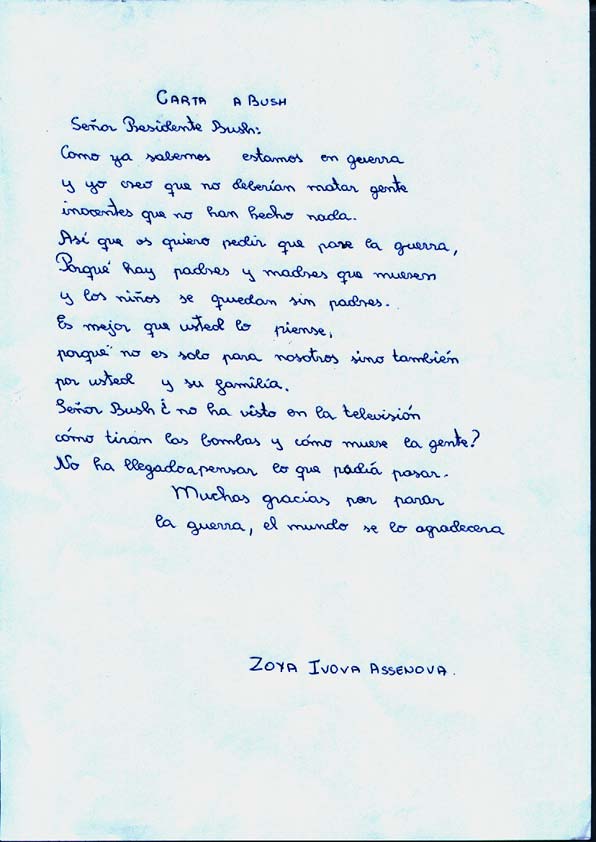 CARTA A BUSH
Señor Presidente Bush:
Como ya sabemos estamos en guerra
y yo creo que no deberían matar gente
inocentes que no han hecho nada.
Así que os quiero pedir que pare la guerra,
Porqué hay padres y madres que mueren
y los niños se quedan sin padres.
Es mejor que usted lo piense,
porque no es solo para nosotros sino también
por usted y su familia.
Señor Bush ¿ no ha visto en la televisión
cómo tiran las bombas y cómo muere la gente?
No ha llegado a pensar lo que podía pasar.
Muchas gracias por parar
la guerra, el mundo se lo agradecera
ZOYA IVOVA ASSENOVA.